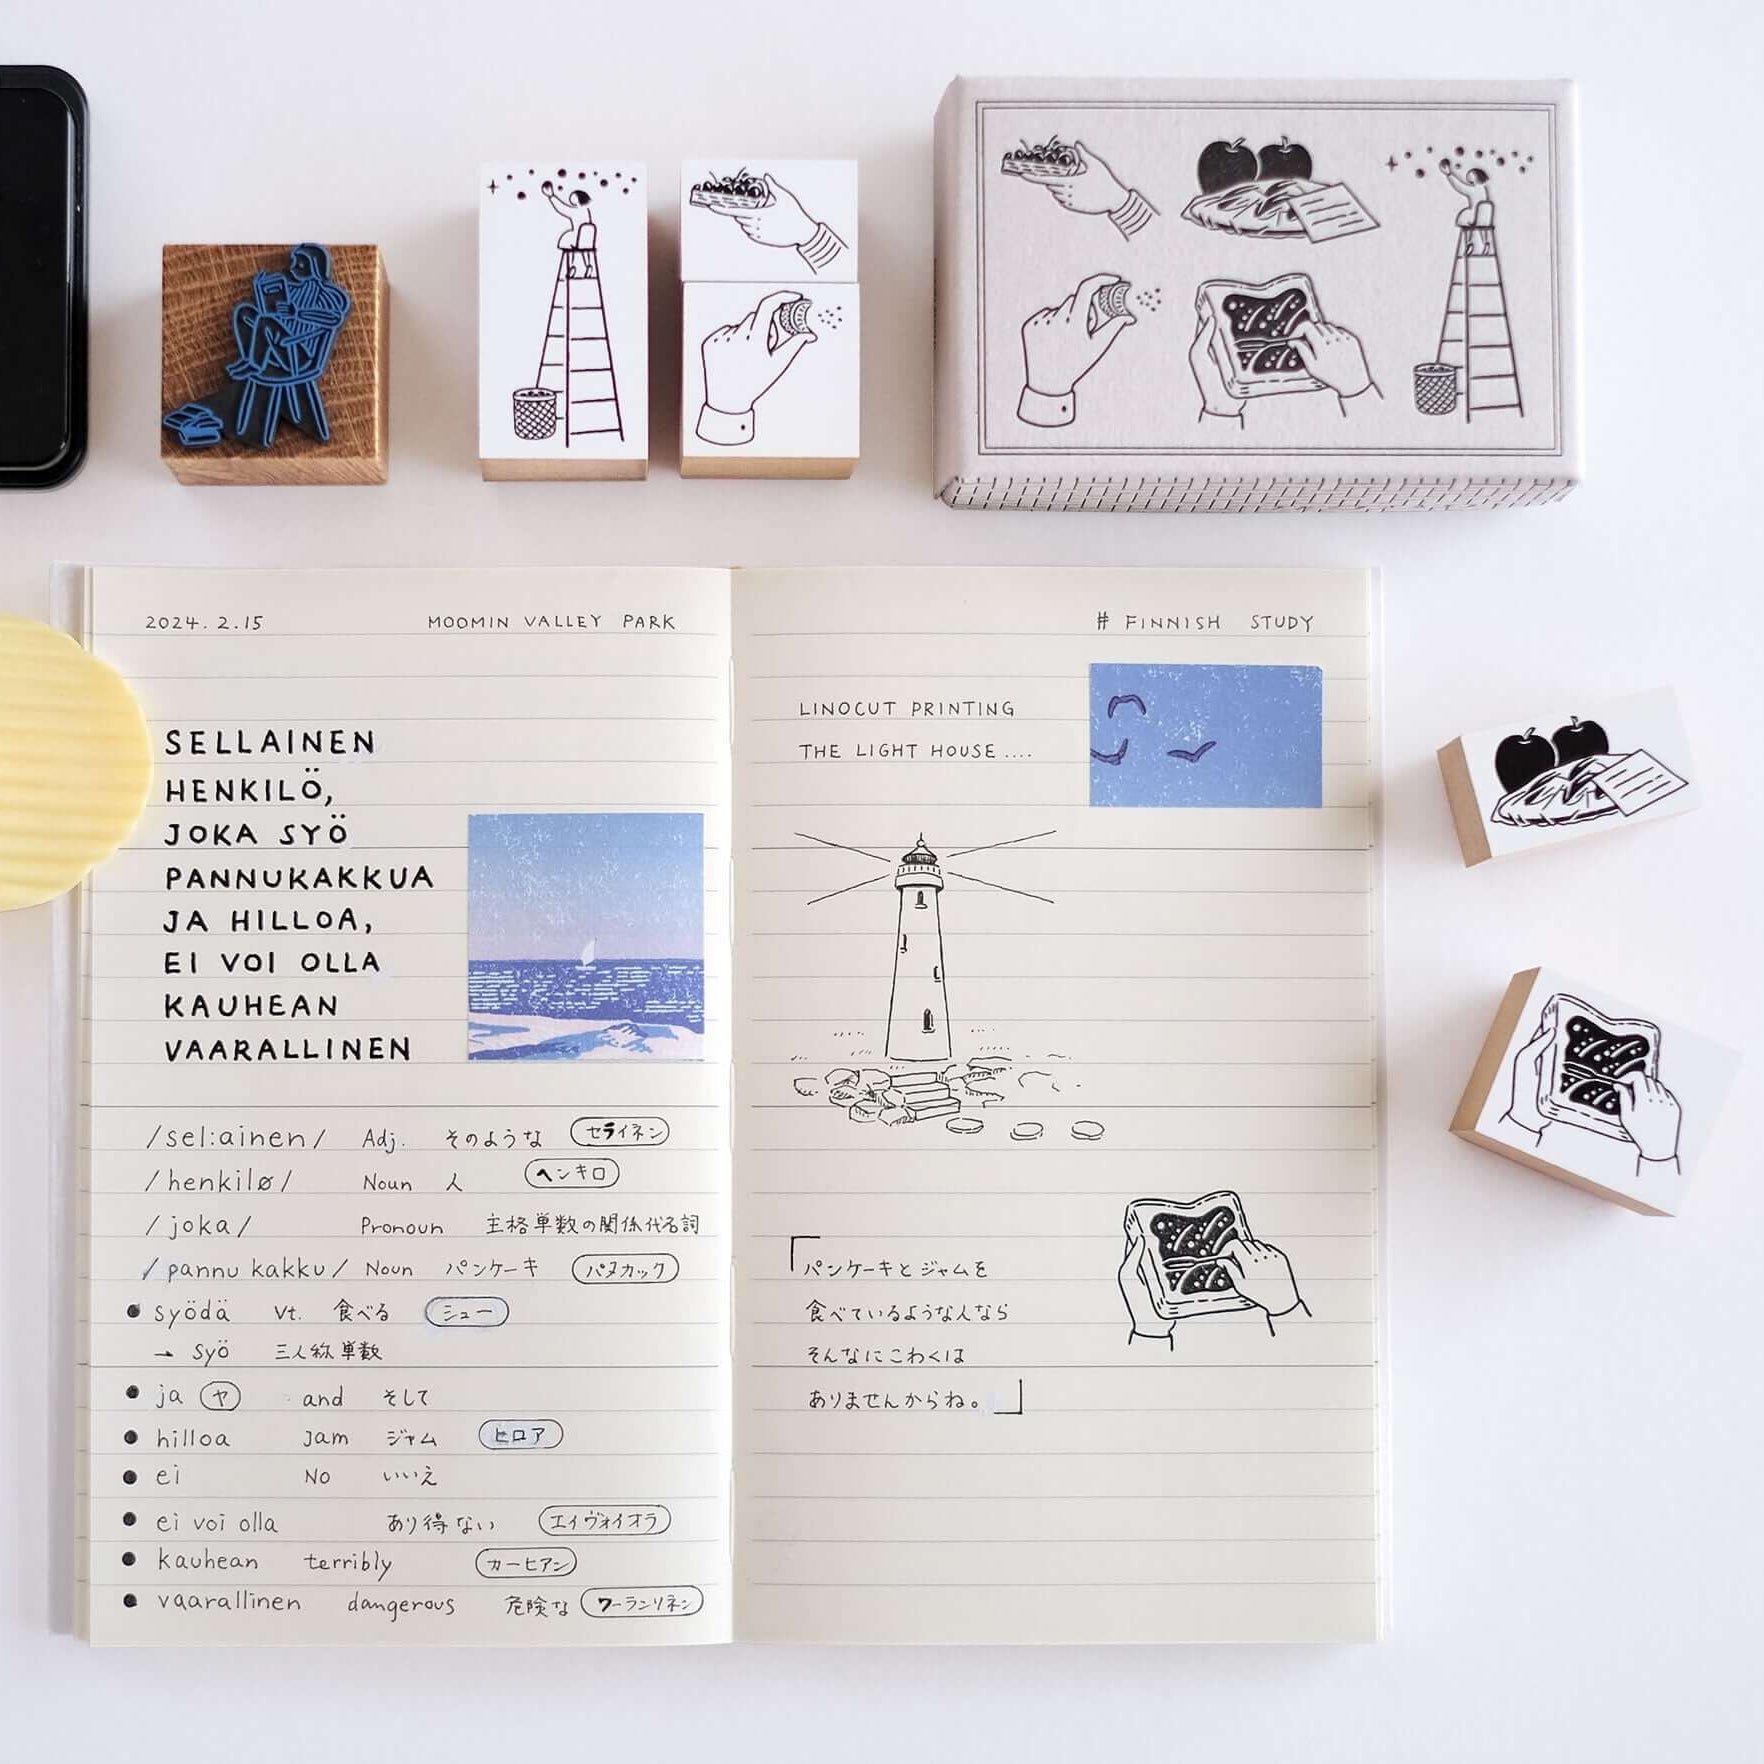 2024. 2.15 MOOMIN VALLEY PARK
SELLAINEN
HENKILÖ,
JOKA SYÖ
PANNUKAKKUA
JA HILLOA,
EI VOI OLLA
KAUHEAN
VAARALLINEN
/sel:ainen/ Adj. そのような セライネン
/henkilø/ Noun 人 ヘンキロ
/joka/ Pronoun 主格単数の関係代名詞
/pannu kakku/ Noun パンケーキ パヌカック
● syödä Vt. 食べる シュー
→ syö 三人称単数
● ja ヤ and そして
● hilloa Jam ジャム ヒロア
● ei No いいえ
● ei voi olla あり得ない エイヴォイオラ
● kauhean terribly カーヒアン
● vaarallinen dangerous 危険な ワーランリネン
# FINNISH STUDY
LINOCUT PRINTING
THE LIGHT HOUSE ....
「パンケーキとジャムを
食べているような人なら
そんなにこわくは
ありませんからね。」